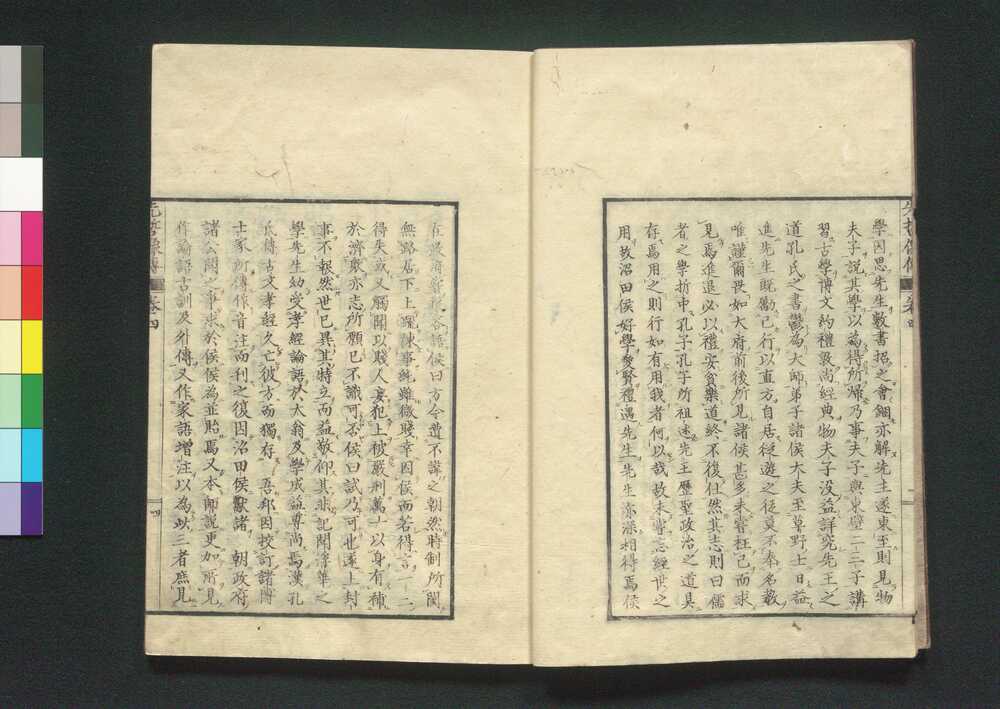 學因思先生數書招之會錮亦解先生遂東至則見物
夫子說其學以為得所歸乃事夫子與東壁二三子講
習古學博文約禮敦尚經典物夫子没益詳究先王之
道孔氏之書鬱為大師弟子諸侯大夫至草野士日益
進先生既勵己行以直方自居從遊之徒莫不奉名教
唯謹爾畏如大府前後所見諸侯甚多未嘗枉己而求
見焉進退必以禮安貧樂道終不復仕然其志則曰儒
者之學折中孔子孔子所祖述先王歷聖政治之道具
存焉用之則行如有用我者何以哉故未嘗忘經世之
用故沼田侯好學愛賢禮遇先生先生亦深相得焉侯
侯曰方今遭不諱之朝然時制所閡
無路居下上疏陳事純雖微賤幸因侯而名得言一二
得失或又觸聞以賤人妄犯上被嚴刑萬一以身有補
於濟眾亦志所願已不識可否侯曰試乃可也遂上封
事不報然世已異其特立而益敬仰其非記聞浮華之
學先生幼受孝經論語於大翁及學成益尊尚焉漢孔
氏傳古文孝經久亡彼方而獨存吾邦因校訂諸博
士家所傳作音注而刊之復因沼田侯獻諸朝政府
諸公聞之事求於侯侯為並貽焉又本師說更加所見
作論語古訓及外傳又作家語增注以為此三者庶見
先哲像傳 卷四
四